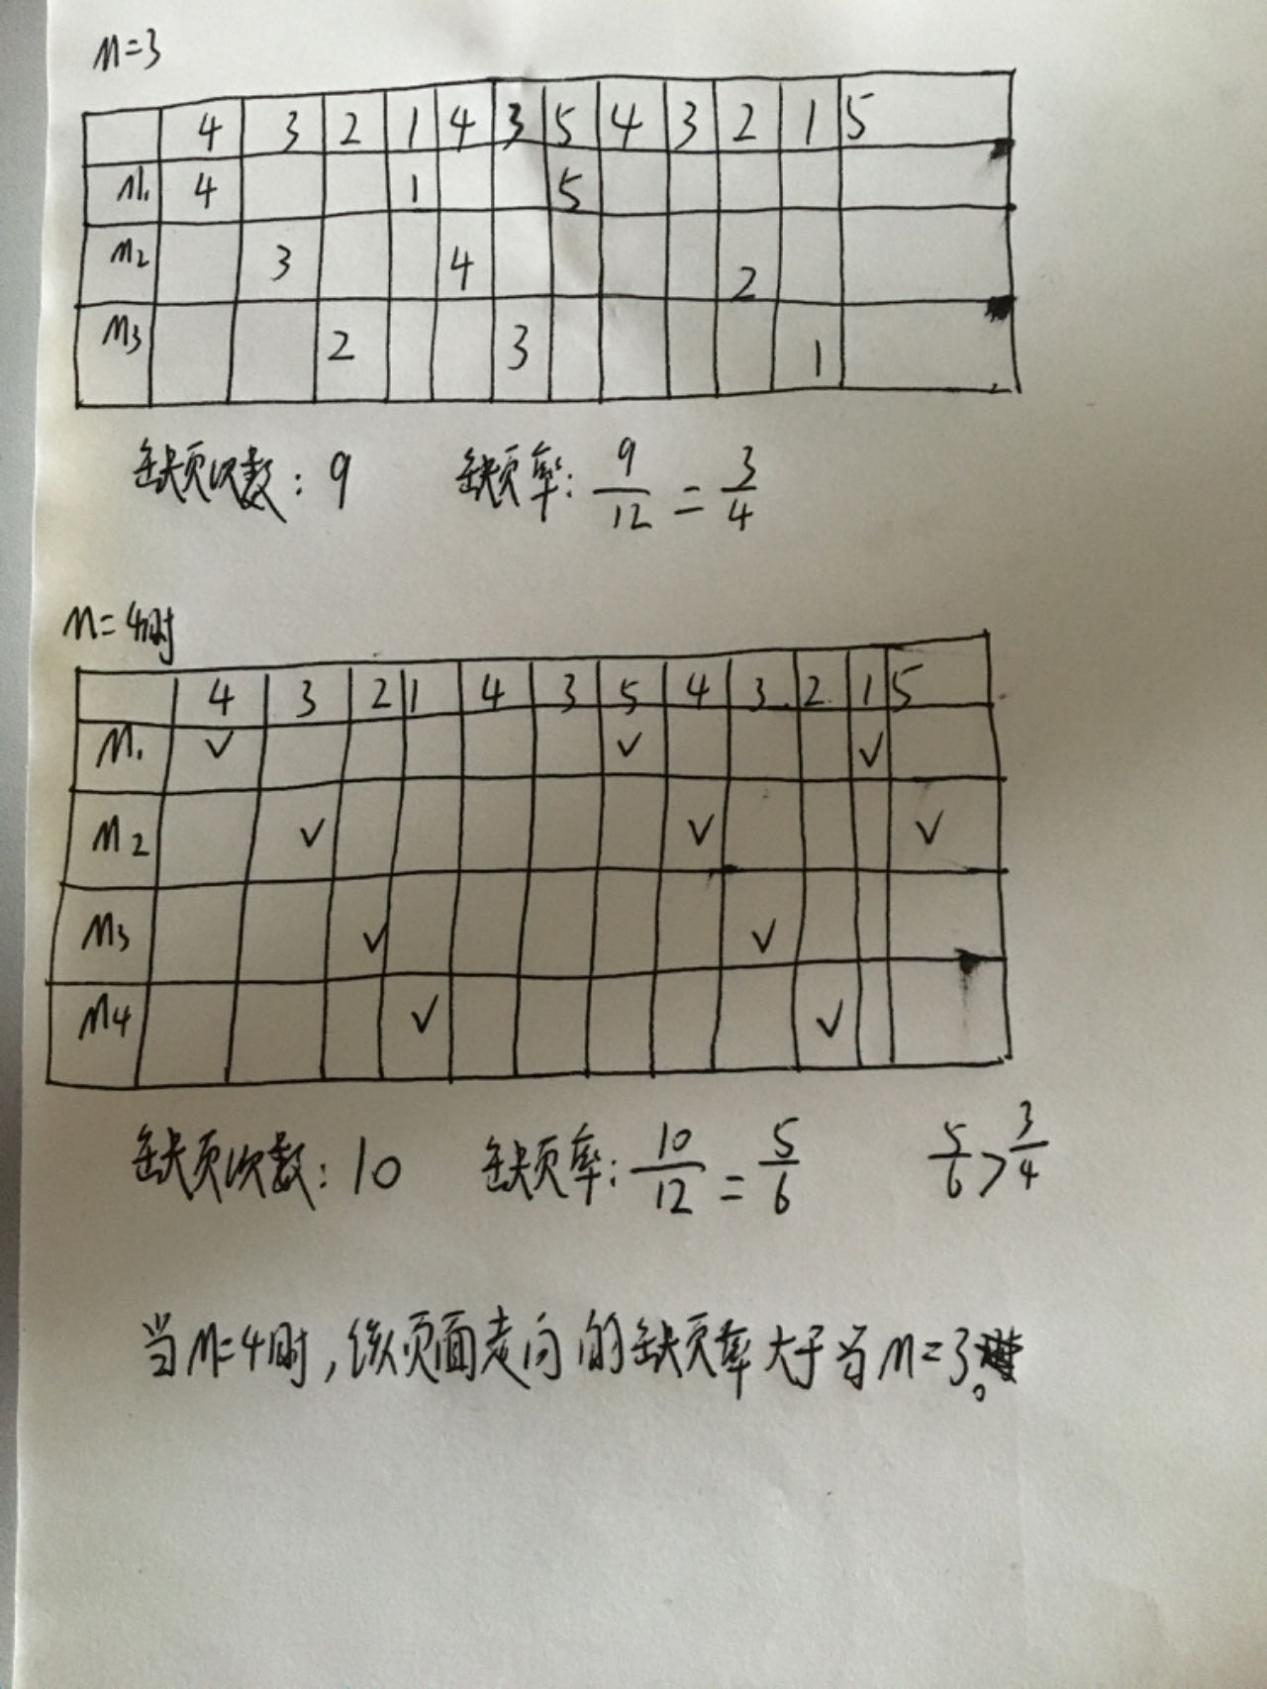 M=3
4 3 2 1 4 3 5 4 3 2 1 5
M1 4 1 5
M2 3 4 2
M3 2 3 1
缺页次数：9 缺页率：9/12=3/4
M=4时
4 3 2 1 4 3 5 4 3 2 1 5
M1 ✓ ✓ ✓
M2 ✓ ✓ ✓
M3 ✓ ✓
M4 ✓ ✓
缺页次数：10 缺页率：10/12=5/6 5/6>3/4
当M=4时，该页面走向的缺页率大于当M=3。